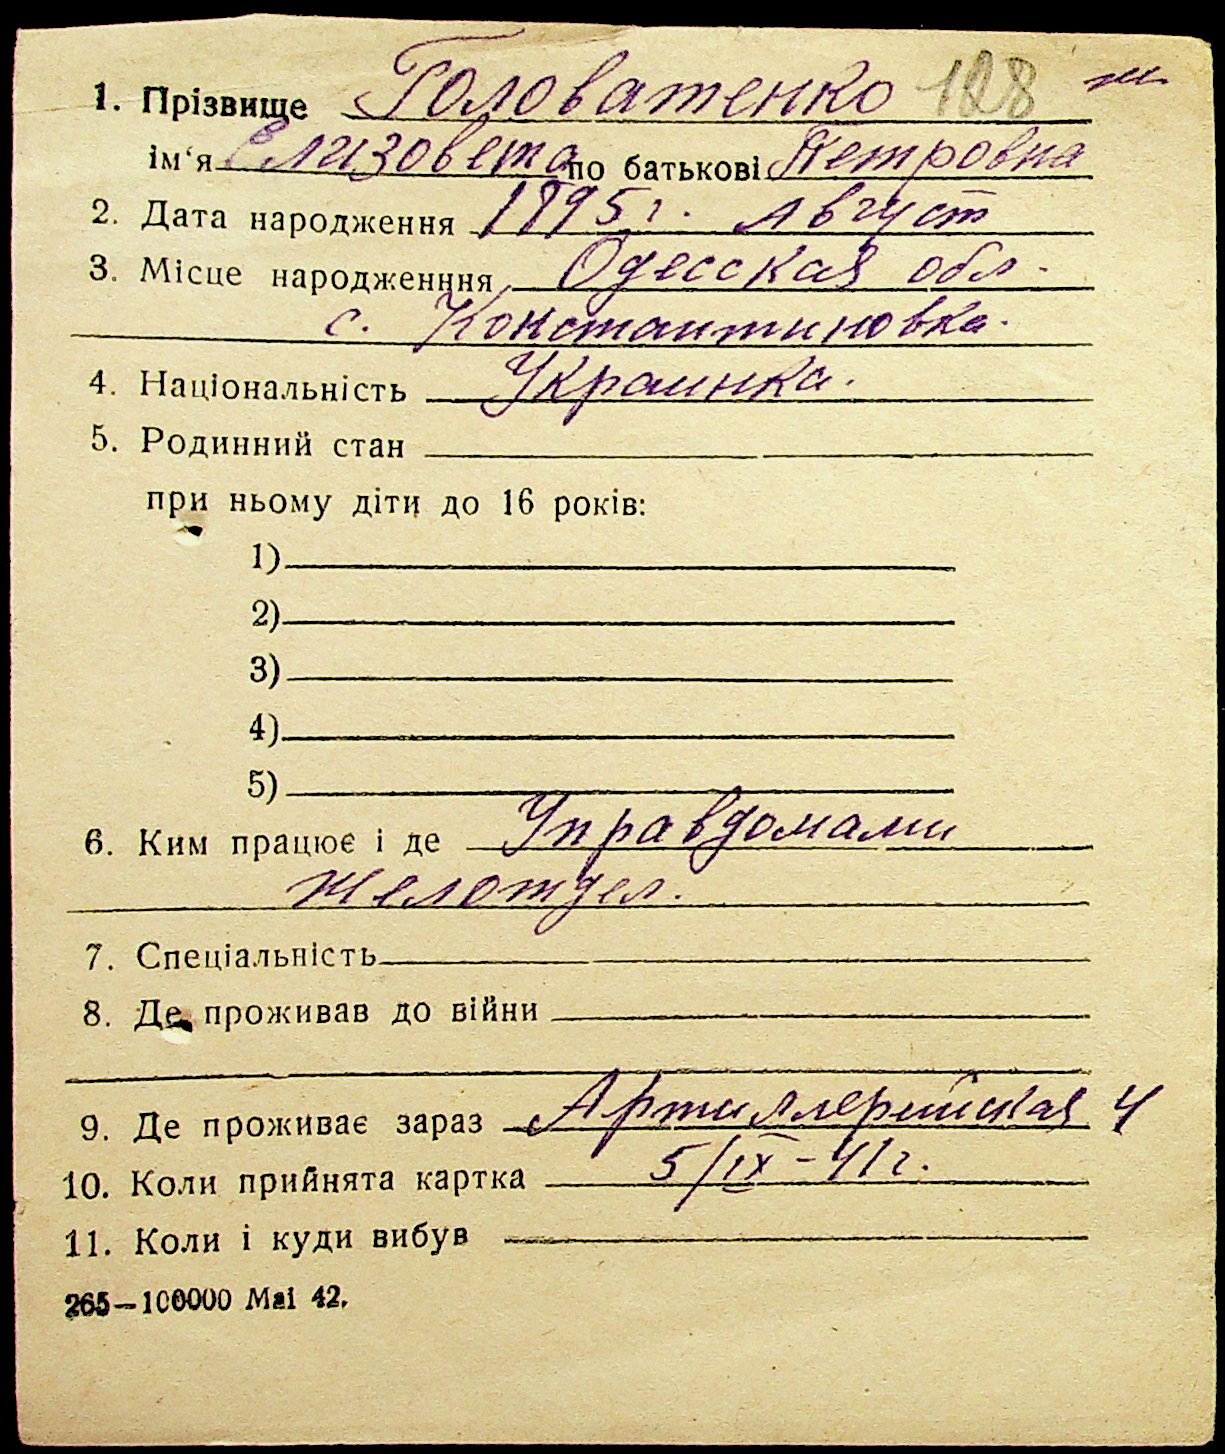 1. Прізвище Головатенко 128 ж
ім‘я Елизовета по батькові Петровна
2. Дата народження 1895 г. Август
3. Місце народженння Одесская обл.
с. Константиновка.
4. Національність Украинка.
5. Родинний стан
при ньому діти до 16 років:
1)
2)
3)
4)
5)
6. Ким працює і де Управдомами
Желотдел.
7. Спеціальність
8. Де проживав до війни
9. Де проживає зараз Артиллерийская 4
10. Коли прийнята картка 5/IX-41г.
11. Коли і куди вибув
265—100000 Маі 42.